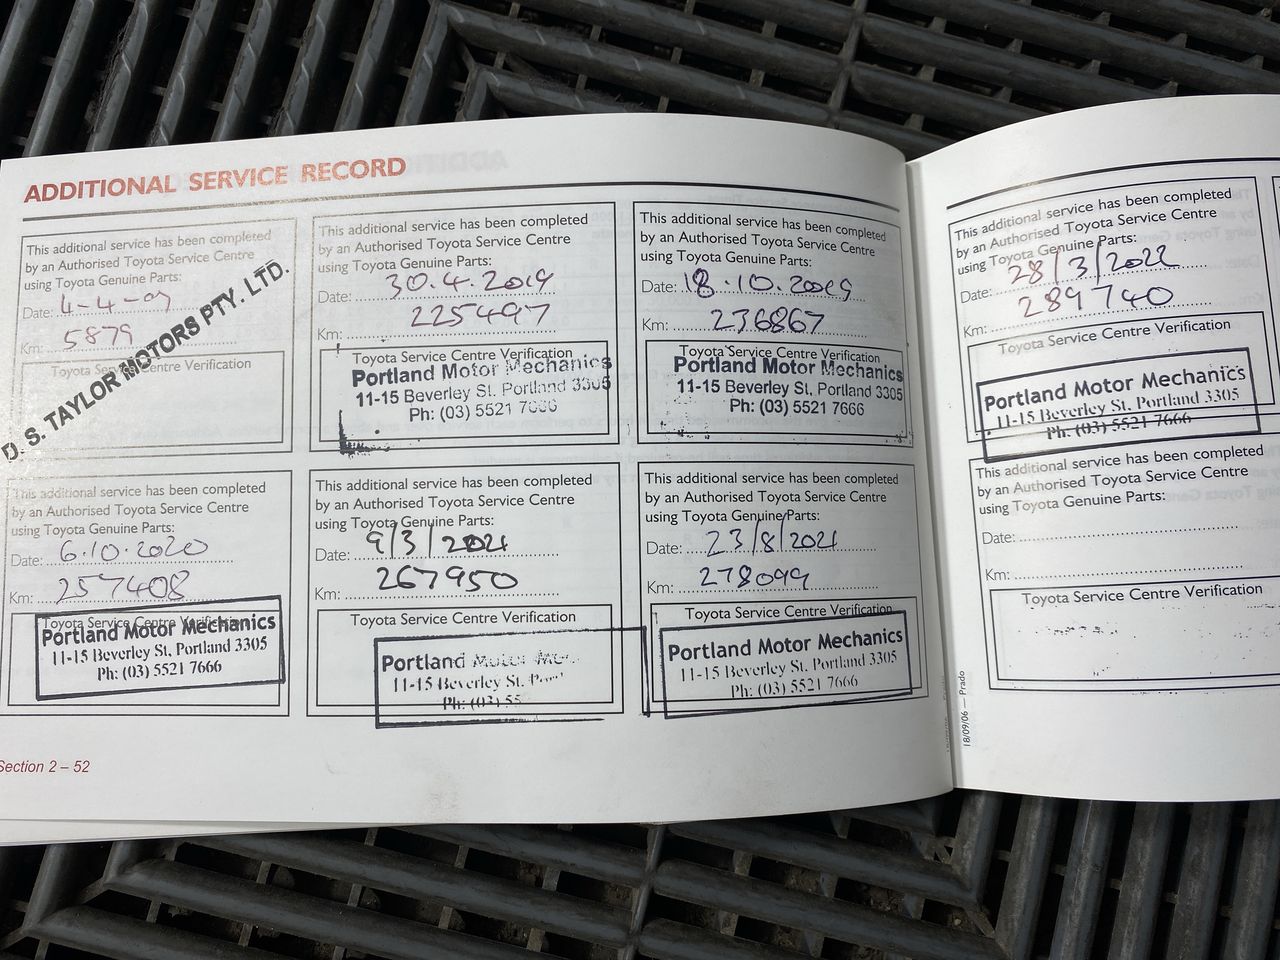 ADDITIONAL SERVICE RECORD
This additional service has been completed
by an Authorised Toyota Service Centre
using Toyota Genuine Parts:
Date: 4-4-09
Km: 5879
Toyota Service Centre Verification
D. S. TAYLOR MOTORS PTY. LTD.
This additional service has been completed
by an Authorised Toyota Service Centre
using Toyota Genuine Parts:
Date: 30.4.2019
Km: 225497
Toyota Service Centre Verification
Portland Motor Mechanics
11-15 Beverley St, Portland 3305
Ph: (03) 5521 7666
This additional service has been completed
by an Authorised Toyota Service Centre
using Toyota Genuine Parts:
Date: 18.10.2019
Km: 236867
Toyota Service Centre Verification
Portland Motor Mechanics
11-15 Beverley St, Portland 3305
Ph: (03) 5521 7666
This additional service has been completed
by an Authorised Toyota Service Centre
using Toyota Genuine Parts:
Date: 6.10.2020
Km: 257408
Toyota Service Centre Verification
Portland Motor Mechanics
11-15 Beverley St, Portland 3305
Ph: (03) 5521 7666
This additional service has been completed
by an Authorised Toyota Service Centre
using Toyota Genuine Parts:
Date: 9/3/2021
Km: 267950
Toyota Service Centre Verification
Portland Motor
11-15 Beverley St,
Ph: (03) 55
This additional service has been completed
by an Authorised Toyota Service Centre
using Toyota Genuine Parts:
Date: 23/8/2021
Km: 278099
Toyota Service Centre Verification
Portland Motor Mechanics
11-15 Beverley St, Portland 3305
Ph: (03) 5521 7666
Section 2 – 52
This additional service has been completed
by an Authorised Toyota Service Centre
using Toyota Genuine Parts:
Date: 28/3/2022
Km: 289740
Toyota Service Centre Verification
Portland Motor Mechanics
11-15 Beverley St, Portland 3305
Ph: (03) 5521 7666
This additional service has been completed
by an Authorised Toyota Service Centre
using Toyota Genuine Parts:
Date:
Km:
Toyota Service Centre Verification
18/09/06 — Prado